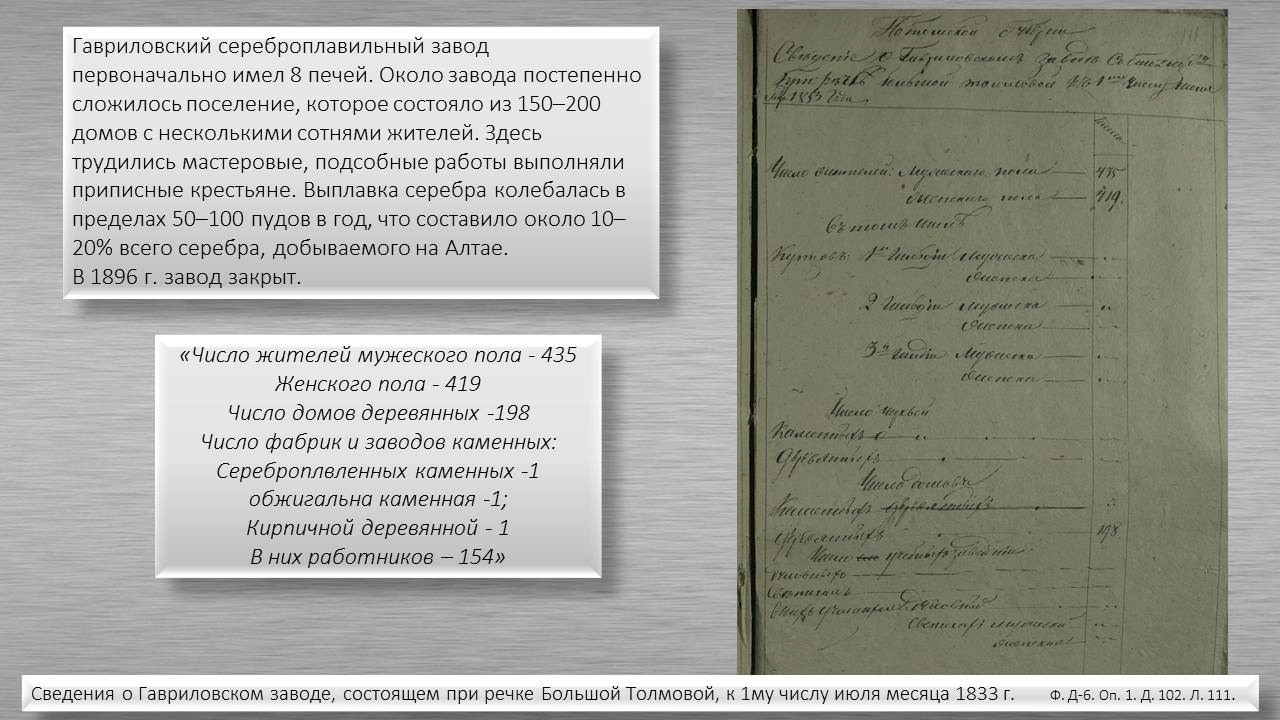 Гавриловский сереброплавильный завод
первоначально имел 8 печей. Около завода постепенно
сложилось поселение, которое состояло из 150–200
домов с несколькими сотнями жителей. Здесь
трудились мастеровые, подсобные работы выполняли
приписные крестьяне. Выплавка серебра колебалась в
пределах 50–100 пудов в год, что составило около 10–
20% всего серебра, добываемого на Алтае.
В 1896 г. завод закрыт.
«Число жителей мужеского пола - 435
Женского пола - 419
Число домов деревянных -198
Число фабрик и заводов каменных:
Сереброплвленных каменных -1
обжигальна каменная -1;
Кирпичной деревянной - 1
В них работников – 154»
Томской Губернии
Число жителей: Мужескаго пола — 435
женскаго пола — 419.
Въ томъ числѣ
Купцовъ: 1й Гильдіи Мужеска
Женска
2 Гильдіи Мужеска
Женска
3й Гильдіи Мужеска
Женска
Число церквей
Каменныхъ
Деревянныхъ
Число домовъ
Каменныхъ
Деревянныхъ 198
Число учебныхъ заведеній
Сведения о Гавриловском заводе, состоящем при речке Большой Толмовой, к 1му числу июля месяца 1833 г. Ф. Д-6. Оп. 1. Д. 102. Л. 111.